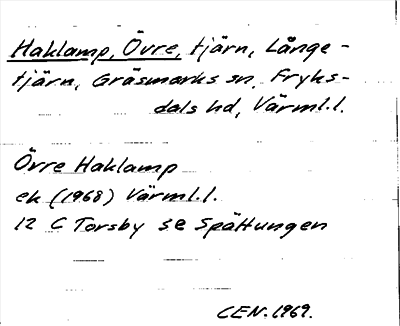 Haklamp, Övre, tjärn, Långe-
tjärn, Gräsmarks sn. Fryks-
dals hd, Värml.l.
Övre Haklamp
ek (1968) Värml.l.
12 C Torsby se Spättungen
CEN. 1969.